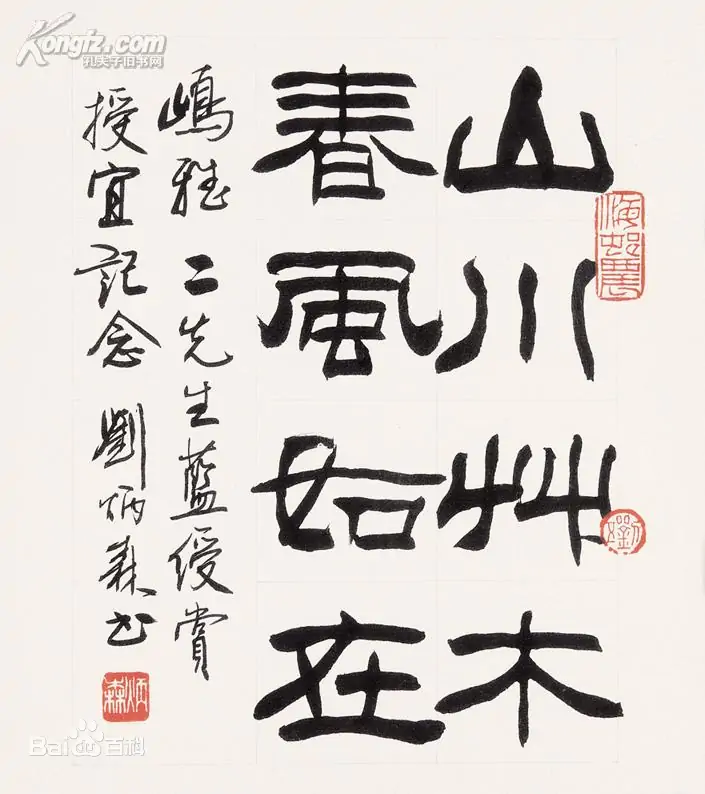 山川艸木
春風如在
嶋雅二先生藍綬賞
授宜記念 劉炳森書
海村農
劉
炳森
Kongfz.com
孔夫子旧书网
Bai百科